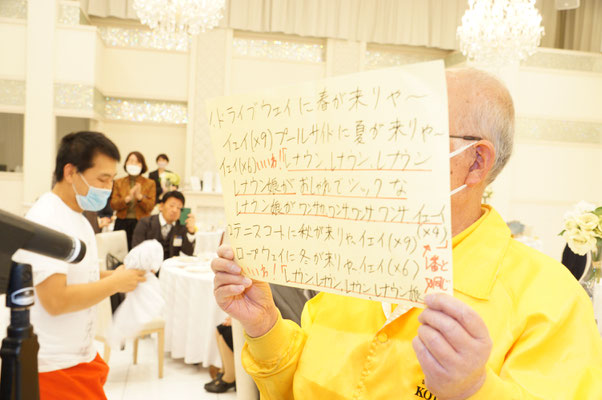 1.ドライブウェイに春が来りゃ〜
イェイ(×9)プールサイドに夏が来りゃ〜
イェイ(×6)いいわ!!「レナウン、レナウン、レナウン
レナウン娘がおしゃれでシックな
レナウン娘がワンサカワンサカワンサワンサ イェイ(×4)
2.テニスコートに秋が来りゃ、イェイ(×9)
ロープウェイに冬が来りゃ、イェイ(×6)
いいわ!「レナウン、レナウン、レナウン、レナウン娘
KO